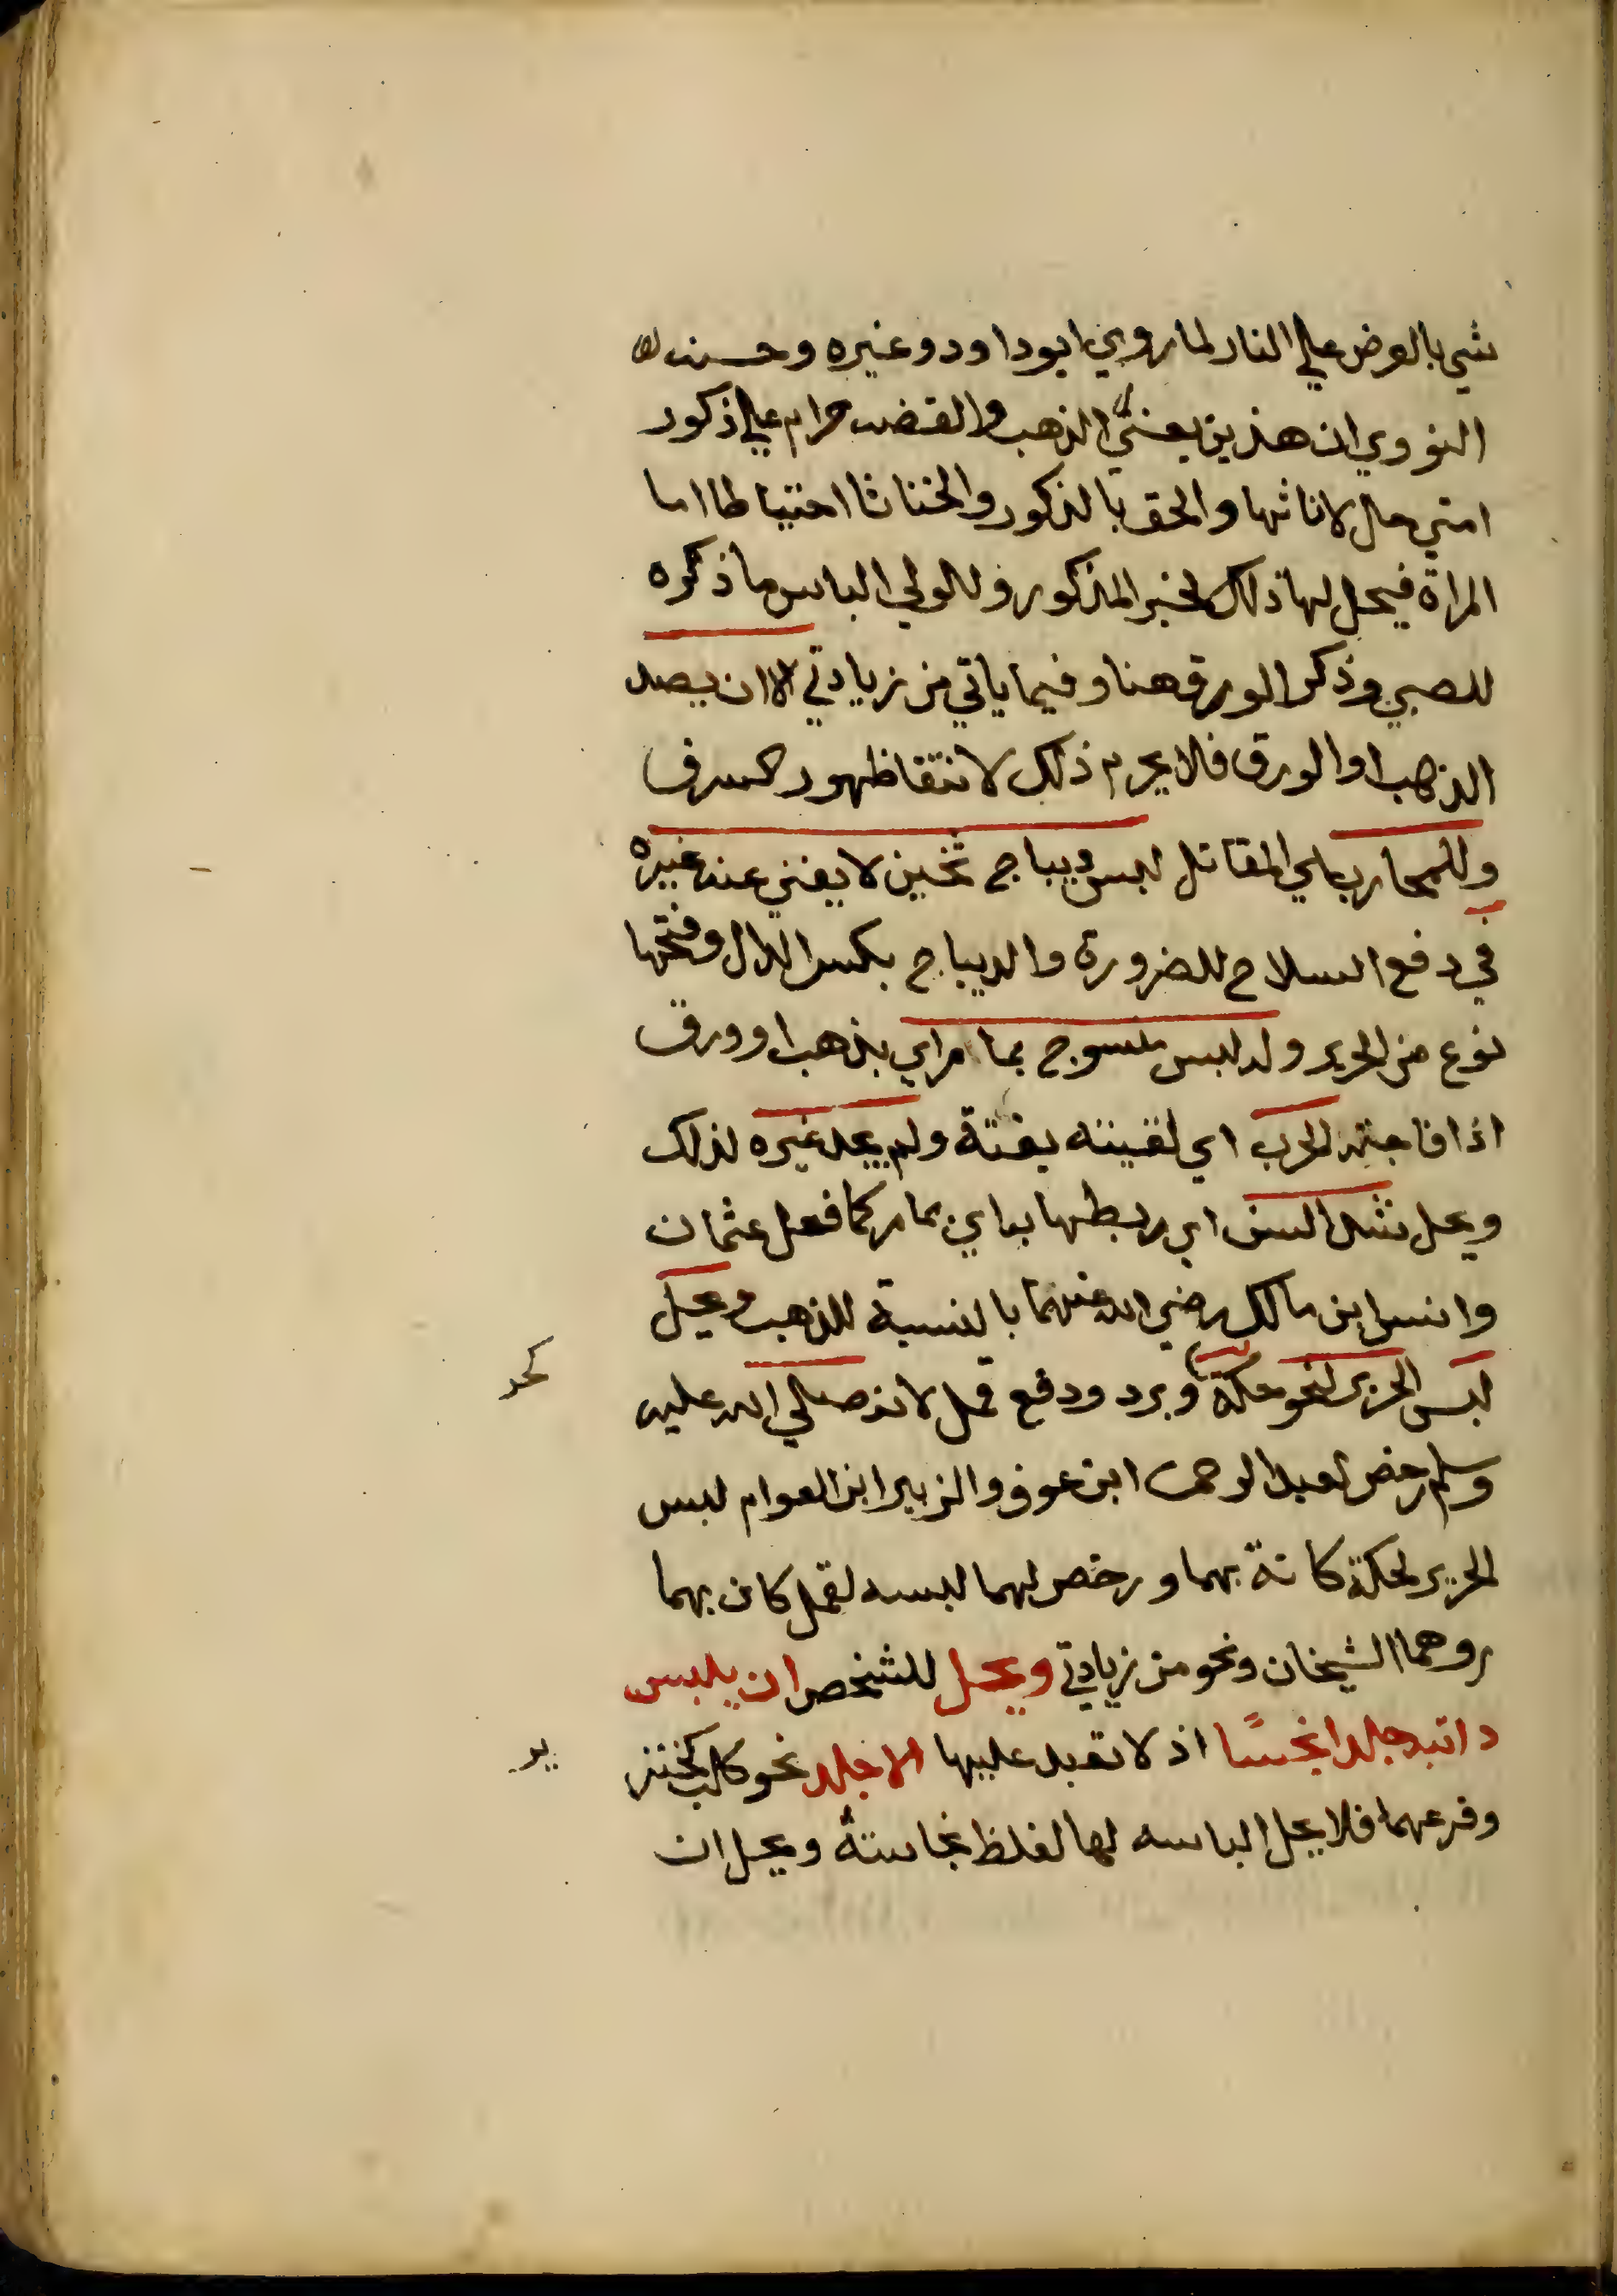 شي بالعرض علي النار لما روي ابو داود وغيره وحسنه
النووي ان هذين يعني الذهب والفضه حرام علي ذكور
امتي حل لاناثها والحق بالذكور والخناثا احتياطا اما
المراة فيحل لها ذلك لخبر المذكور وللولي الباس ما ذكره
للصبي وذكر الورق هنا وفيما ياتي من زيادتي الا ان يصد
الذهب او الورق فلا يحرم ذلك لانتفا ظهور السرف
وللمحارب اي المقاتل لبس ديباج ثخين لا يغني عنه غيره
في دفع السلاح للضرورة والديباج بكسر الدال وفتحها
نوع من الحرير وله لبس منسوج بما مر اي بذهب او ورق
اذا فاجته الحرب اي لقيته بغتة ولم يجد غيره لذلك
ويحل شد السن اي ربطها باي بما مر كما فعل عثمان
وانس ابن مالك رضي الله عنهما بالنسبة للذهب ويحل
لبس الحرير لنحو حكة وبرد ودفع قمل لانه صلي الله عليه
وسلم رخص لعبد الرحمن ابن عوف والزبير ابن العوام لبس
الحرير لحكة كانة بهما ورخص لهما لبسه لقمل كان بهما
روهما الشيخان ونحو من زيادتي ويحل للشخص ان يلبس
داتبه جلدا نجسًا اذ لا تعبد عليها الا جلد نحو كلب كخنز
ير
وفرعهما فلا يحل الباسه لها لغلظ نجاسته ويحل ان